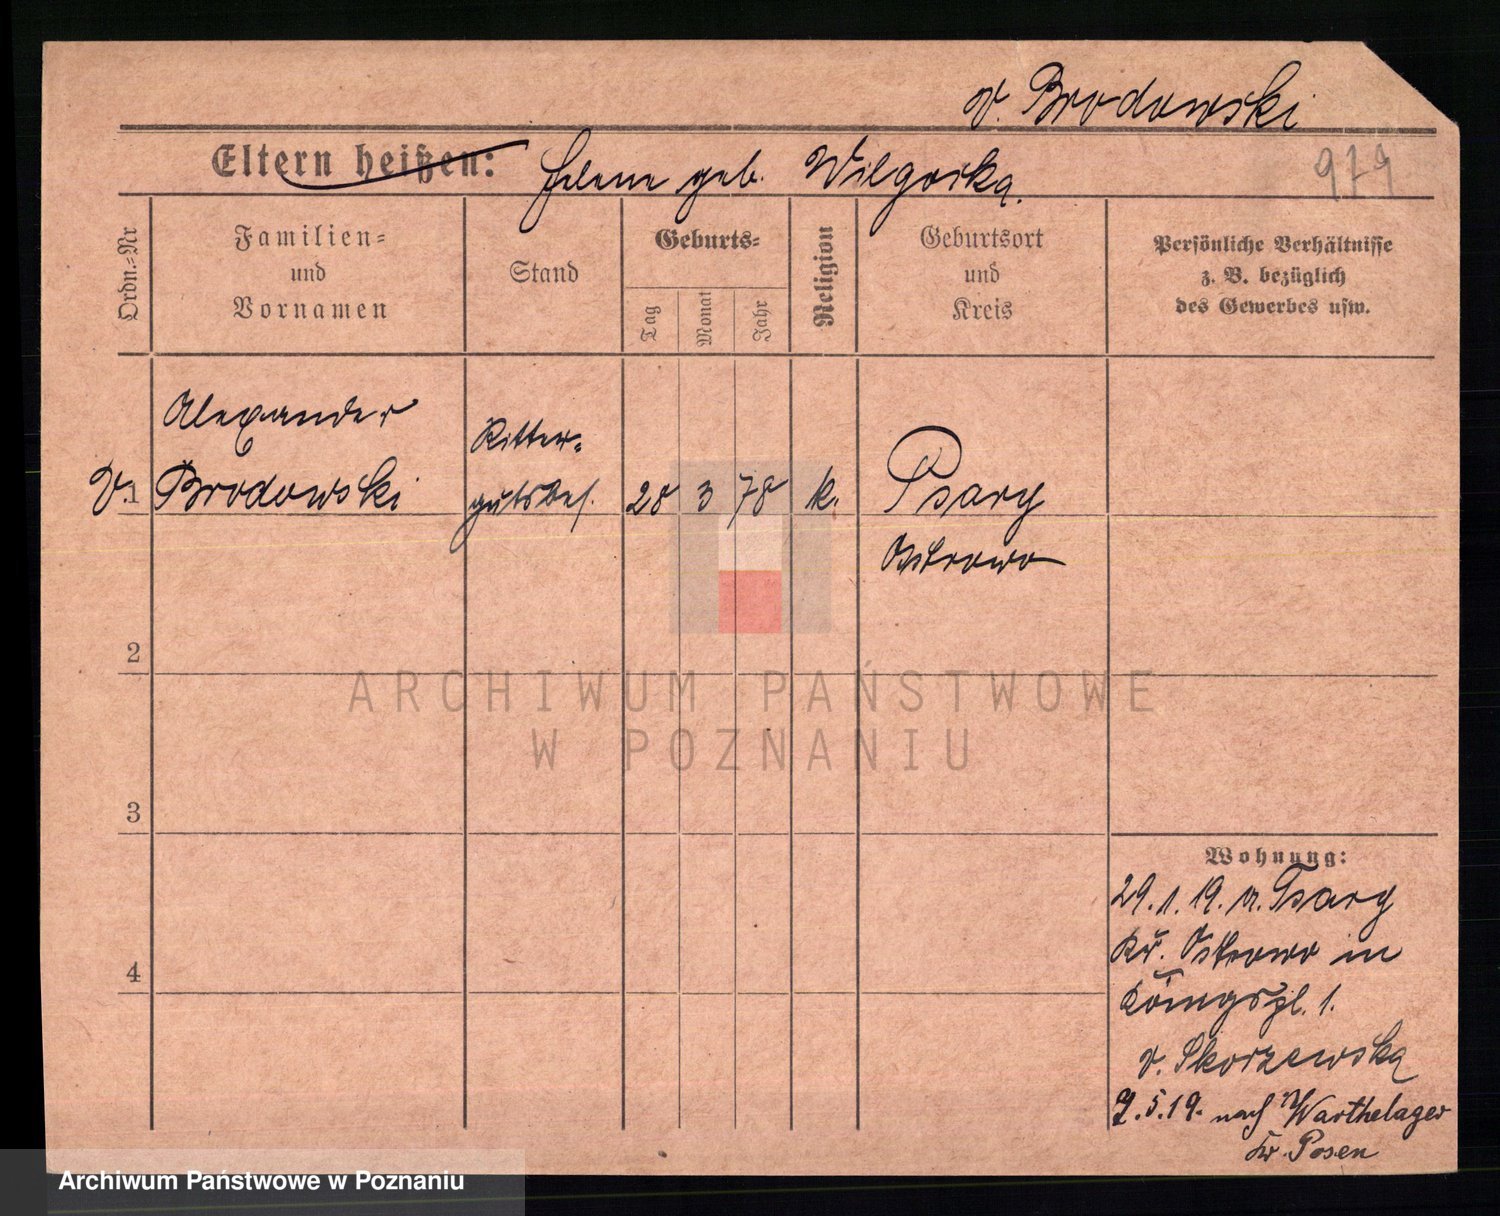 v. Brodowski
Eltern heißen: Helene geb. Wilgorka.
979
Ordn.-Nr
Familien-
und
Vornamen
Stand
Geburts-
Tag
Monat
Jahr
Religion
Geburtsort
und
Kreis
Persönliche Verhältnisse
z. B. bezüglich
des Gewerbes usw.
Alexander
v. 1 Brodowski
Ritter-
gutsbes.
28 3 78 k.
Psary
Ostrowo
2
3
4
Wohnung:
29. 1. 19. v. Psary
Kr. Ostrowo in
Königspl. 1.
v. Skorzewska
7. 5. 19. nach Warthelager
Kr. Posen
ARCHIWUM PAŃSTWOWE
W POZNANIU
Archiwum Państwowe w Poznaniu